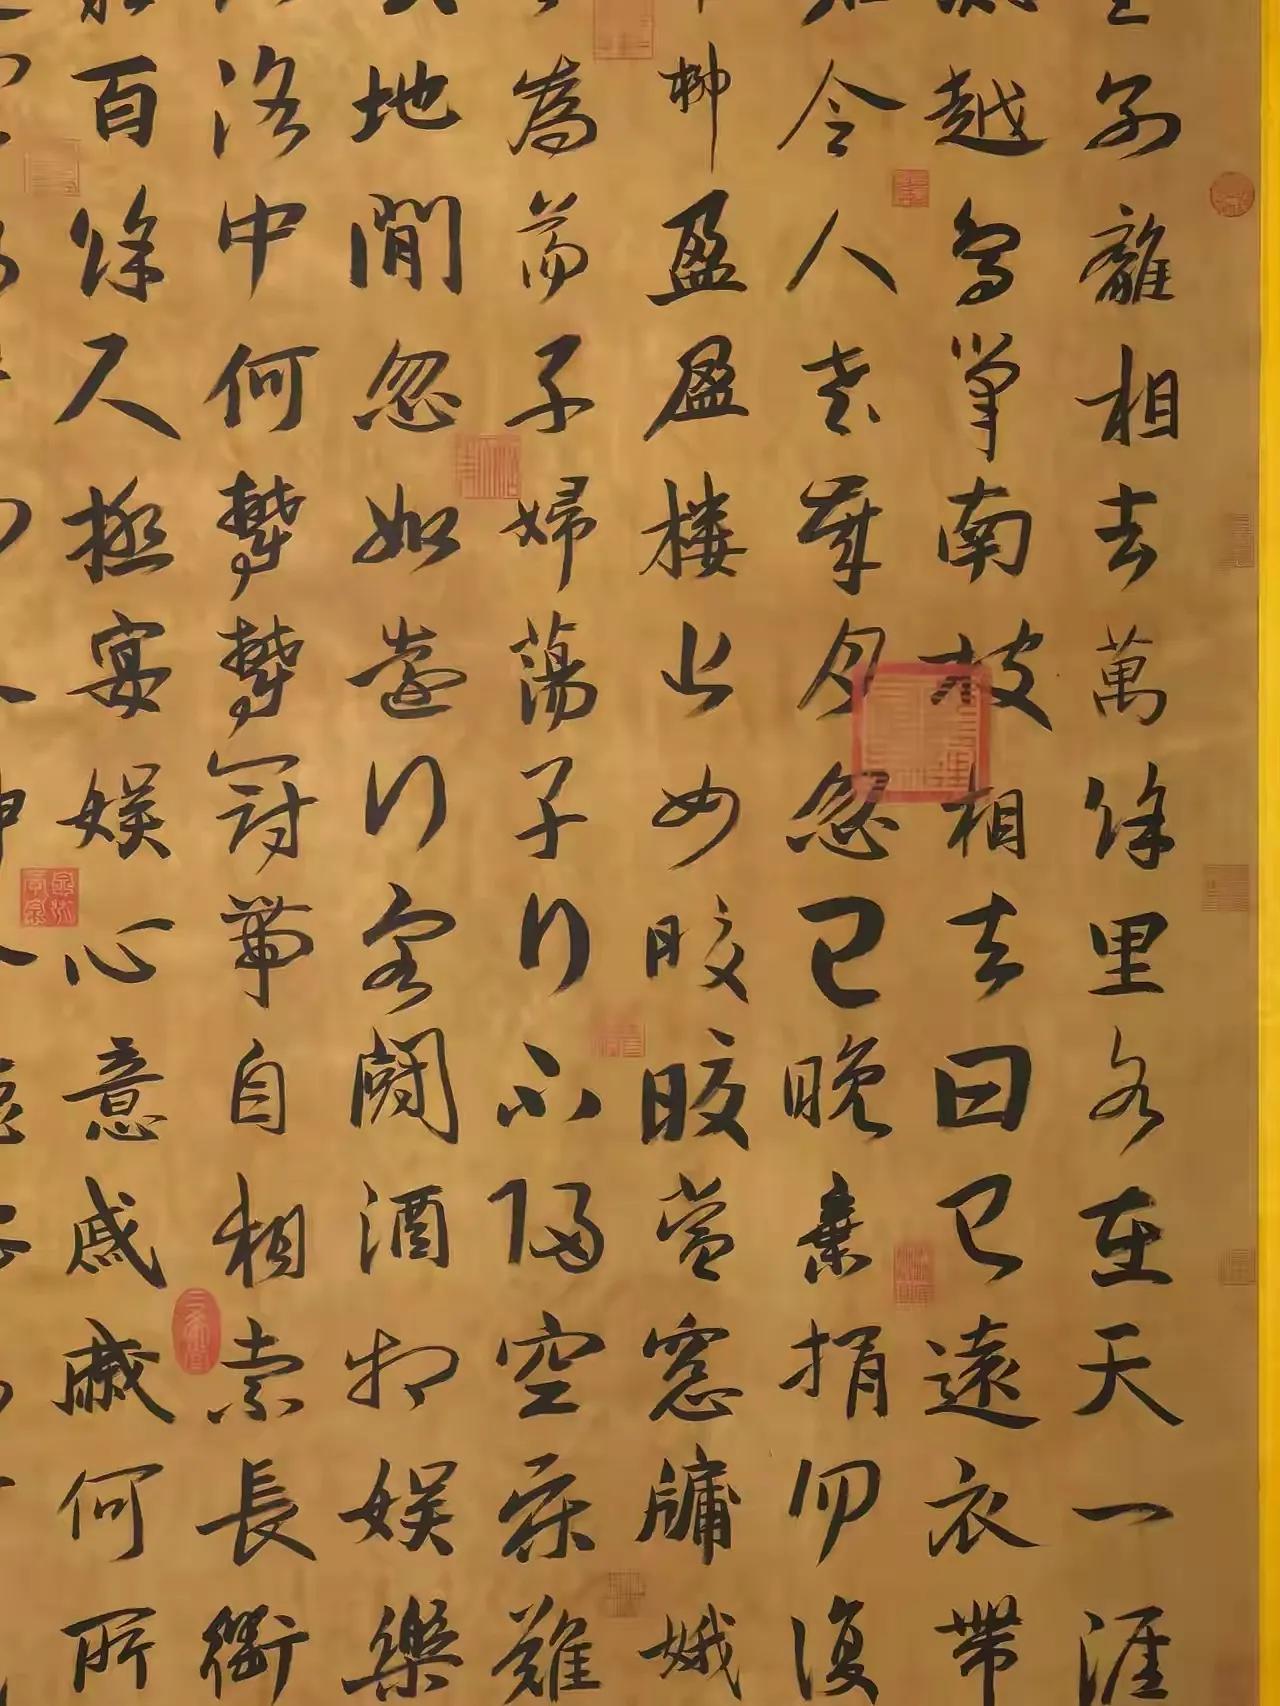 别離相去萬餘里各在天一涯
越鳥巢南枝相去日已遠衣帶
令人老歲月忽已晚棄捐勿復
柳盈盈樓上女皎皎當窗牖娥
為蕩子婦蕩子行不歸空床難
地間忽如遠行客鬪酒相娛樂
洛中何鬱鬱冠帶自相索長衢
百餘尺極宴娛心意戚戚何所